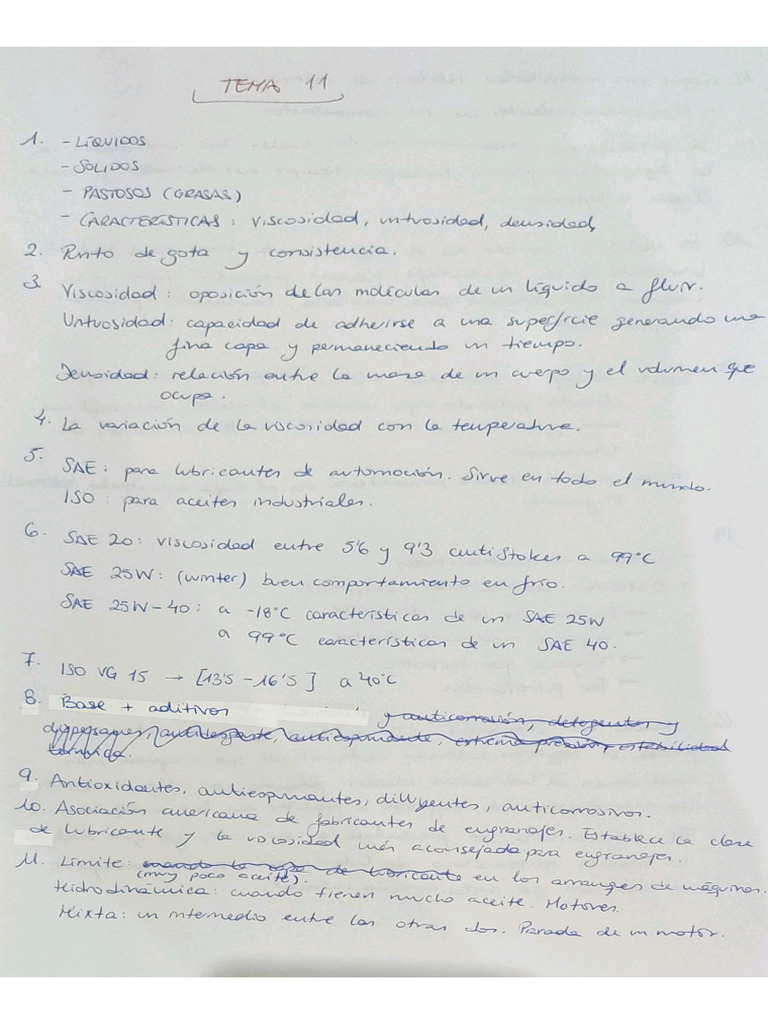 TEMA 11
1. - LÍQUIDOS
- SÓLIDOS
- PASTOSOS (GRASAS)
- CARACTERÍSTICAS: viscosidad, untuosidad, densidad,
2. Punto de gota y consistencia.
3. Viscosidad: oposición de las moléculas de un líquido a fluir.
Untuosidad: capacidad de adherirse a una superficie generando una
fina capa y permaneciendo un tiempo.
Densidad: relación entre la masa de un cuerpo y el volumen que
ocupa.
4. La variación de la viscosidad con la temperatura.
5. SAE: para lubricantes de automoción. Sirve en todo el mundo.
ISO: para aceites industriales.
6. SAE 20: viscosidad entre 5'6 y 9'3 centiStokes a 99°C
SAE 25W: (winter) buen comportamiento en frío.
SAE 25W-40: a -18°C características de un SAE 25W
a 99°C características de un SAE 40.
7. ISO VG 15 → [13'5 - 16'5] a 40°C
8. Base + aditivos y anticorrosión, detergentes y
antidesgaste, antiespumante, extrema presión, estabilidad
térmica.
9. Antioxidantes, antiespumantes, diluyentes, anticorrosivos.
10. Asociación americana de fabricantes de engranajes. Establece la clase
de lubricante y la viscosidad más aconsejada para engranajes.
11. Límite: cuando la capa de lubricante en los arranques de máquinas.
(muy poco aceite).
Hidrodinámica: cuando tienen mucho aceite. Motores.
Mixta: un intermedio entre las otras dos. Parada de un motor.